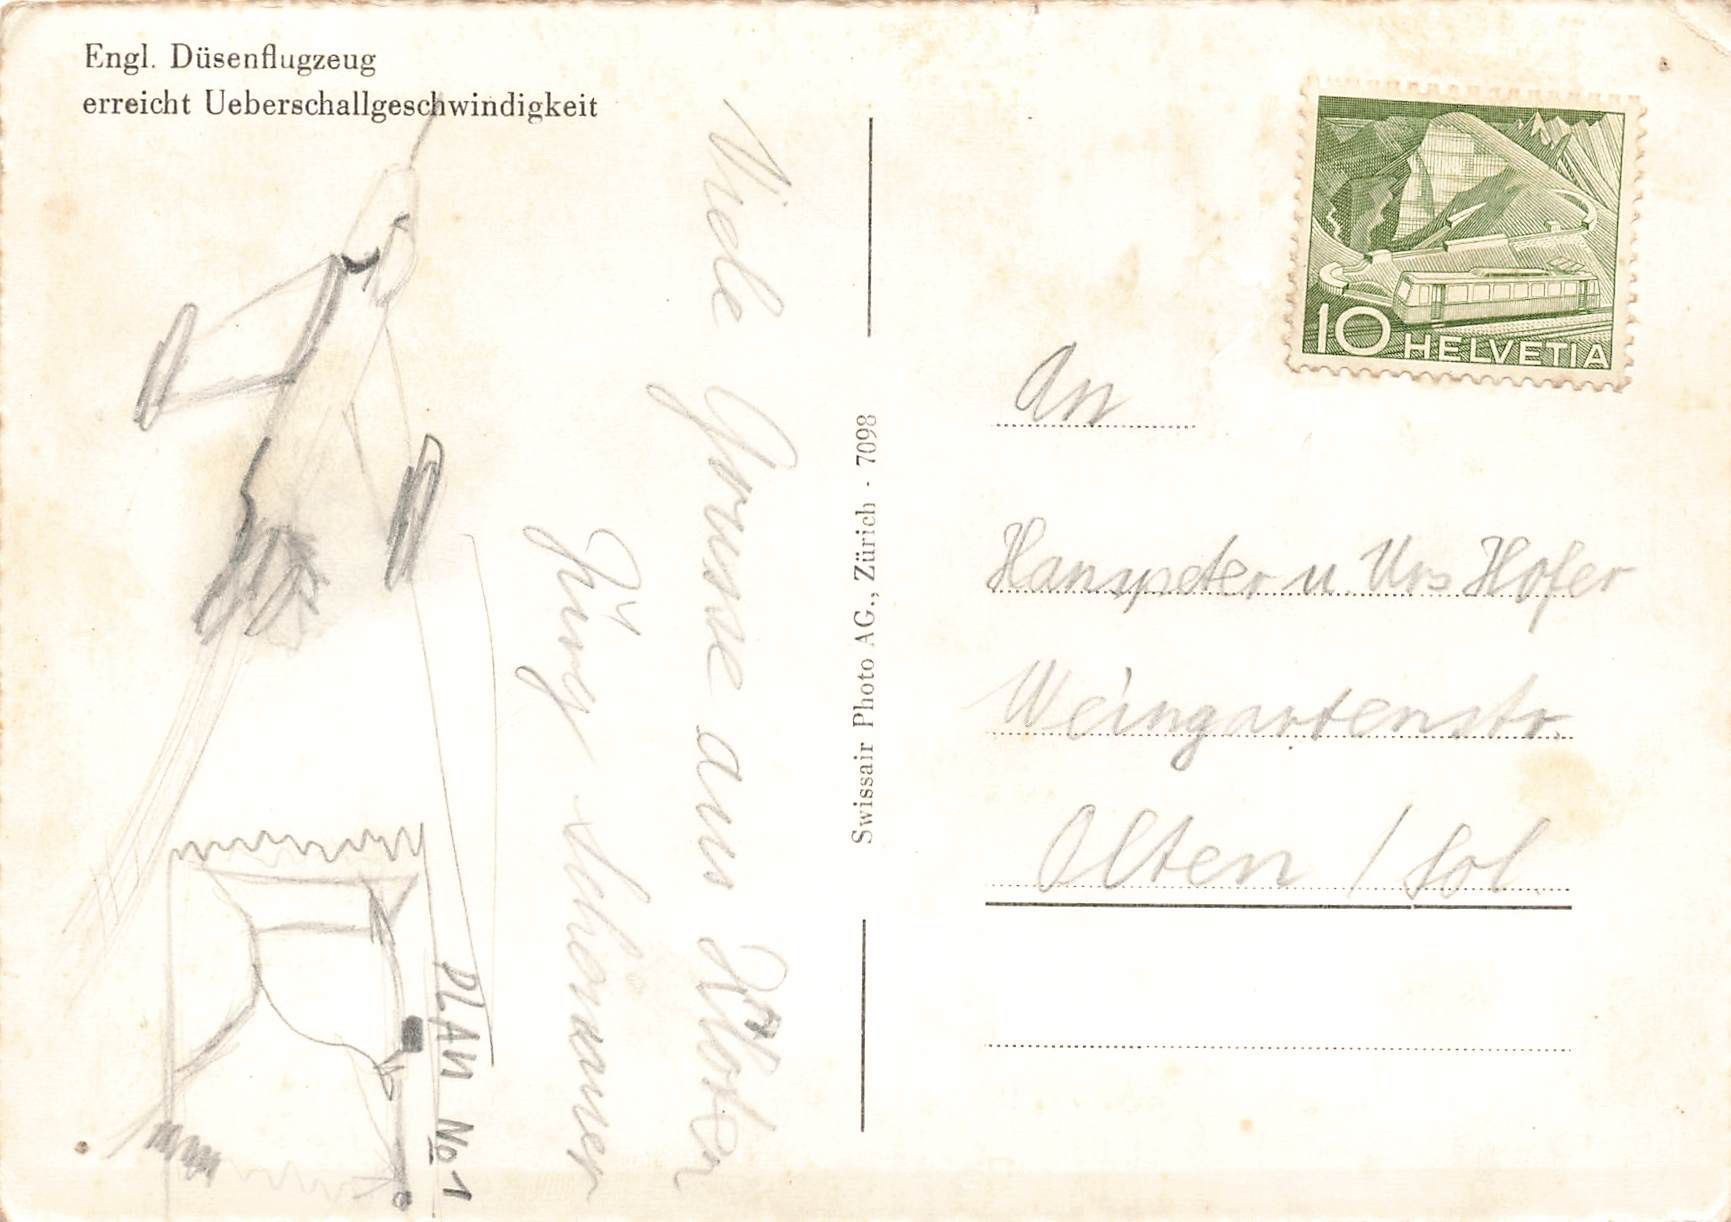 Engl. Düsenflugzeug
erreicht Ueberschallgeschwindigkeit
Viele Grusse aus Kloten
Jürg
PLAN No 1
Swissair Photo AG., Zürich - 7098
10 HELVETIA
An
Hanspeter u. Urs Hofer
Weingartenstr.
Olten / Sol.